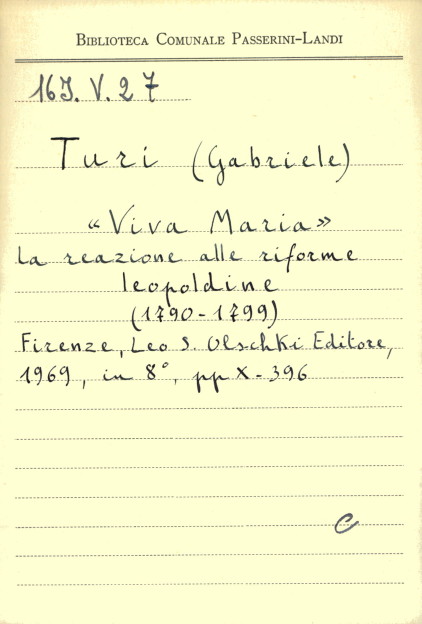 BIBLIOTECA COMUNALE PASSERINI-LANDI
16J. V. 27
Turi (Gabriele)
«Viva Maria»
la reazione alle riforme
leopoldine
(1790-1799)
Firenze, Leo S. Olschki Editore,
1969, in 8°, pp X-396
C